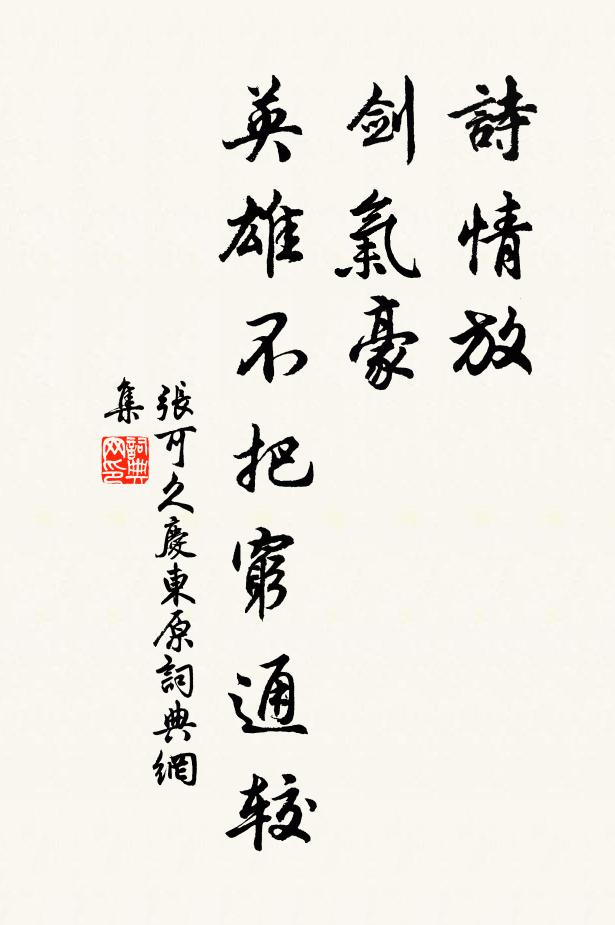 詩情放
劍氣豪
英雄不把窮通較
張可久慶東原詞典網
集
詞典網印